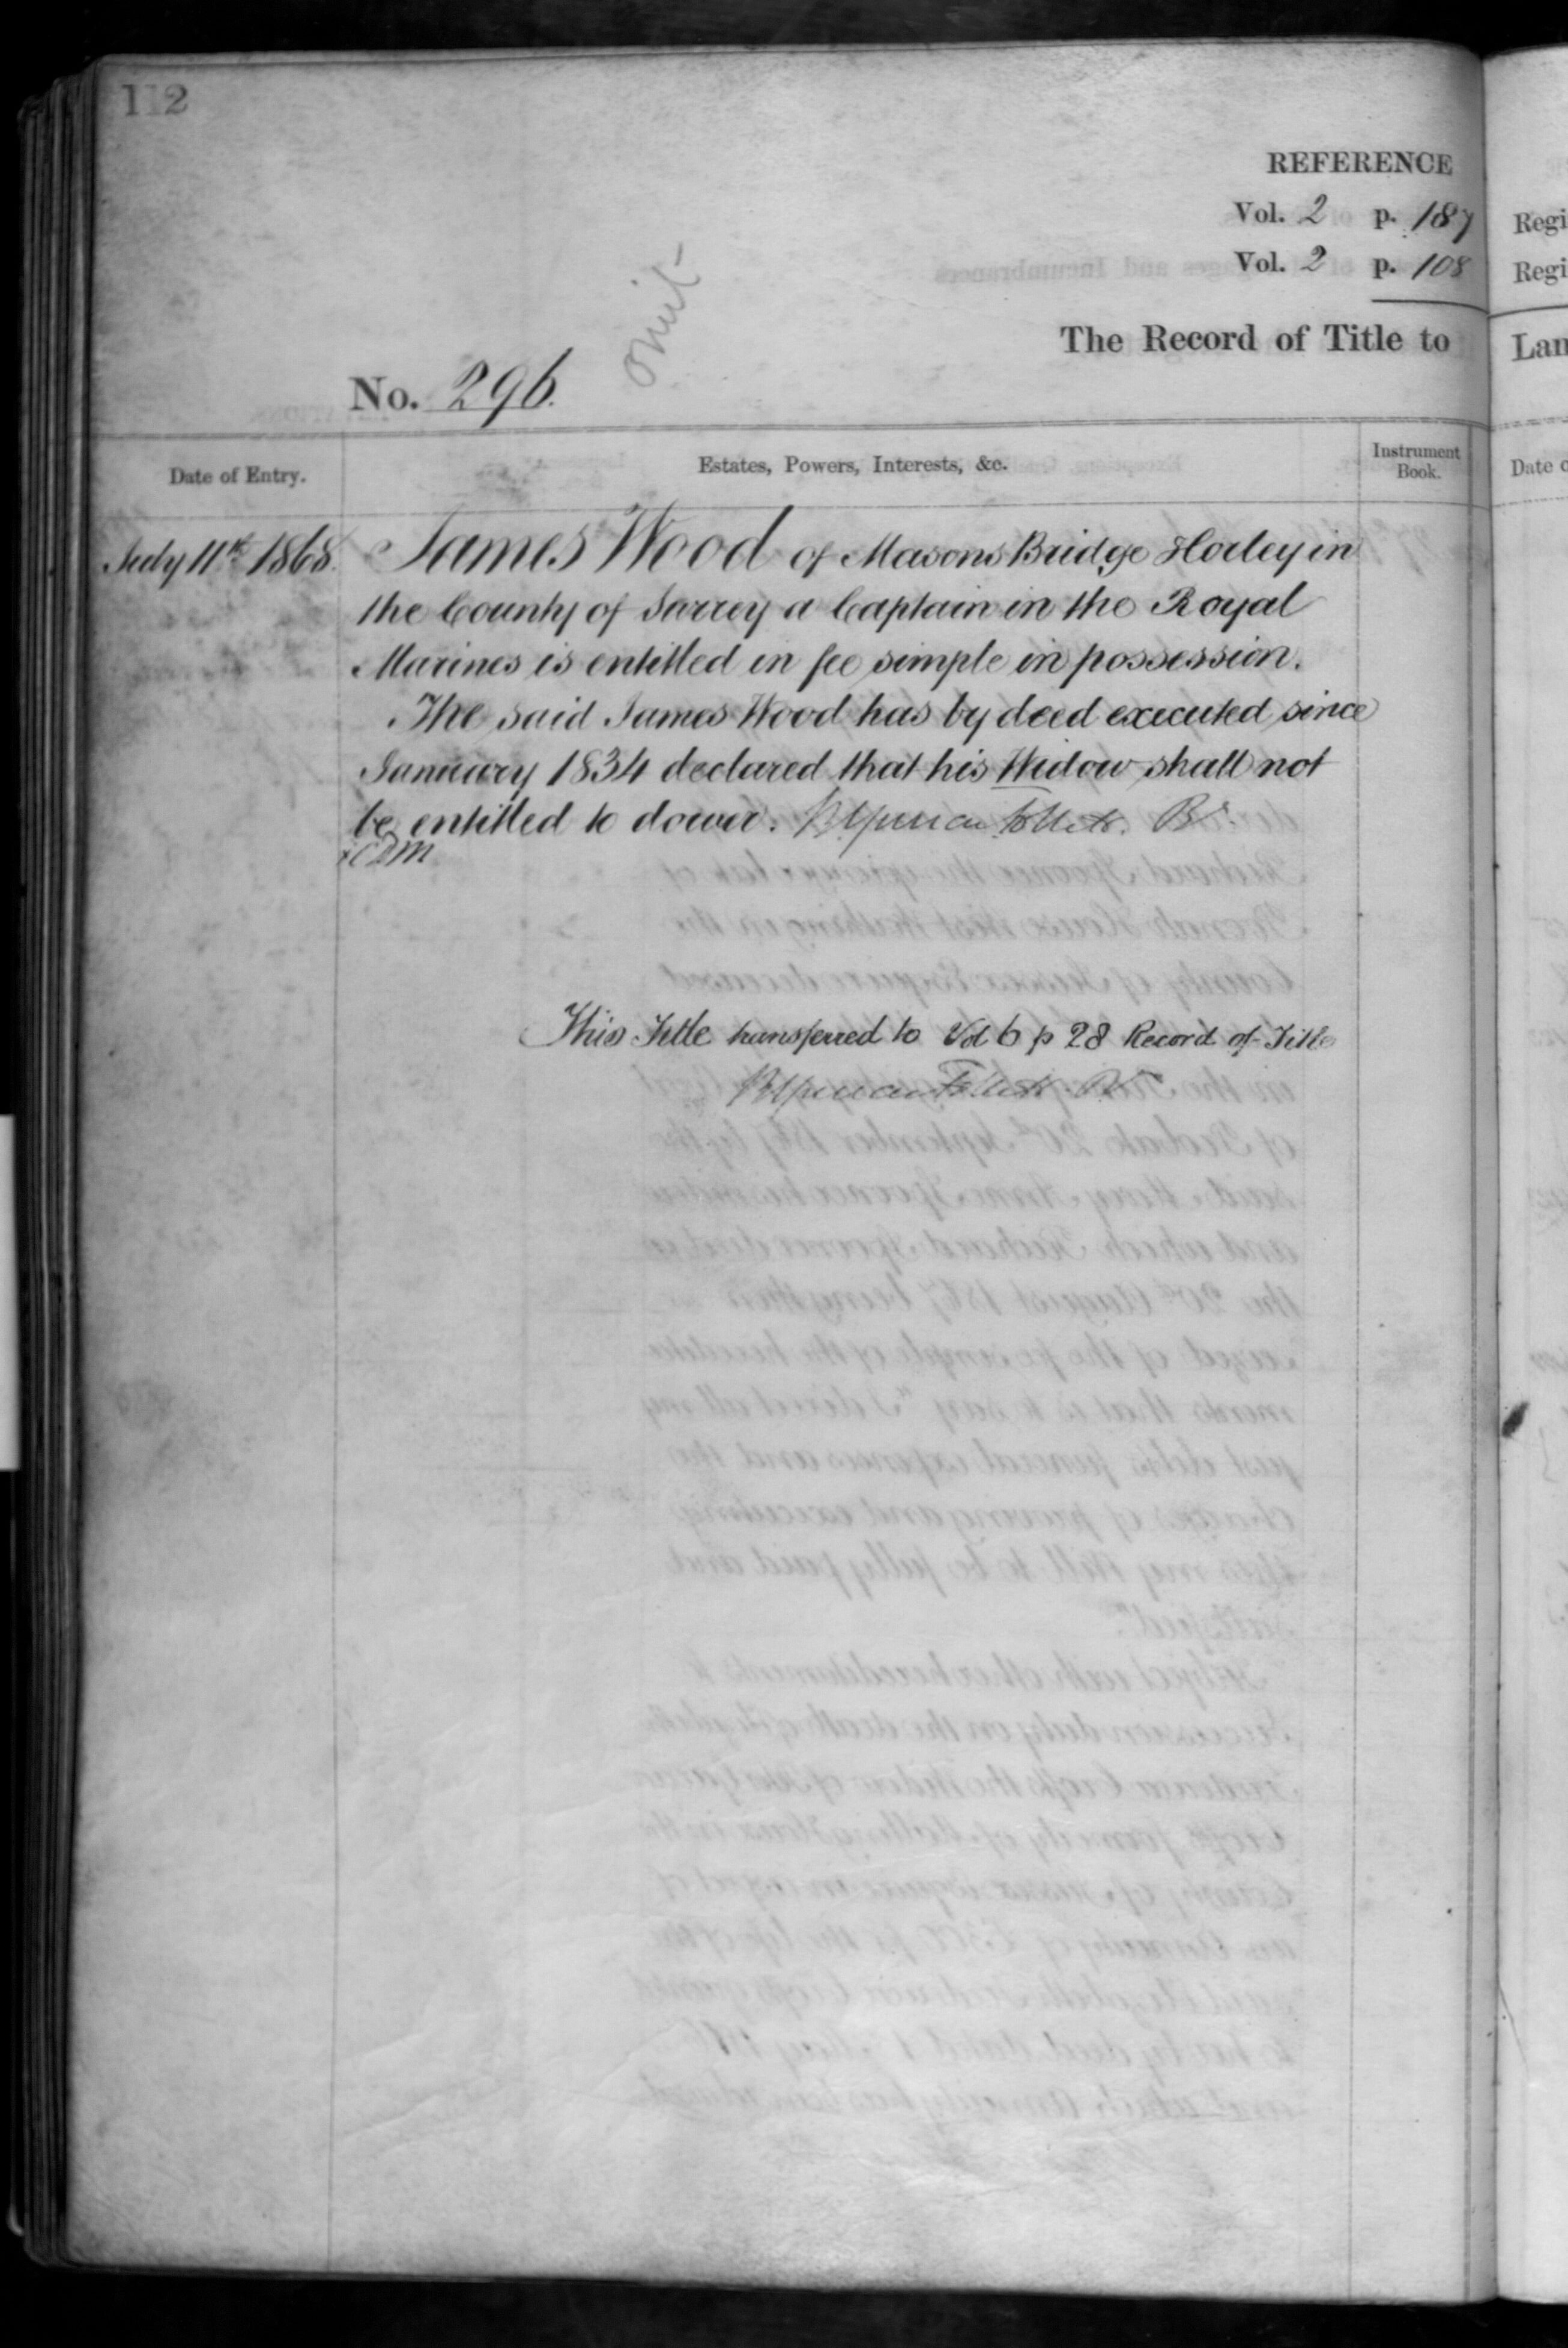 112
REFERENCE
Vol. 2 p. 187
Vol. 2 p. 108
The Record of Title to
omit
No. 296.
Date of Entry.
Estates, Powers, Interests, &c.
Instrument
Book.
July 11th 1868. James Wood of Masons Bridge Horley in
the County of Surrey a Captain in the Royal
Marines is entitled in fee simple in possession.
The said James Wood has by deed executed since
January 1834 declared that his Widow shall not
be entitled to dower.
This Title transferred to Vol 6 p 28 Record of Title
Regi
Regi
Lan
Date o